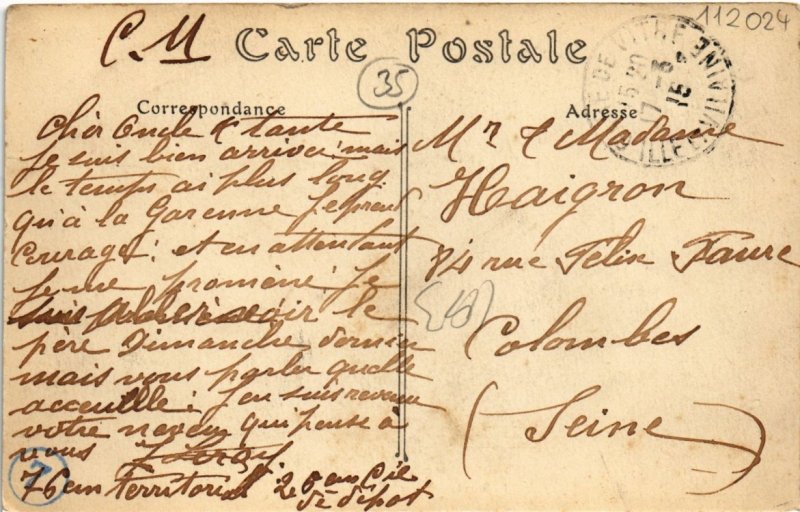 112024
C. M
Carte Postale
35
Correspondance
Adresse
GARE DE VITRÉ
15 20
17 - 6
15
ILLE & VILAINE
Chèr Oncle & tante
Je suis bien arrivé mais
le temps ai plus long
qu'à la Garenne Je prend
Courage: et en attendant
Je me promène. Je
suis voir le
père Dimanche dernier
mais vous parler quelle
acceuille: J'en suis revenu
votre neveu qui pense à
vous J Leroy
76em territorial. 26em Cie
de dépot
7
Mr & Madame
Haigron
84 rue Félix Faure
Colombes
(Seine)